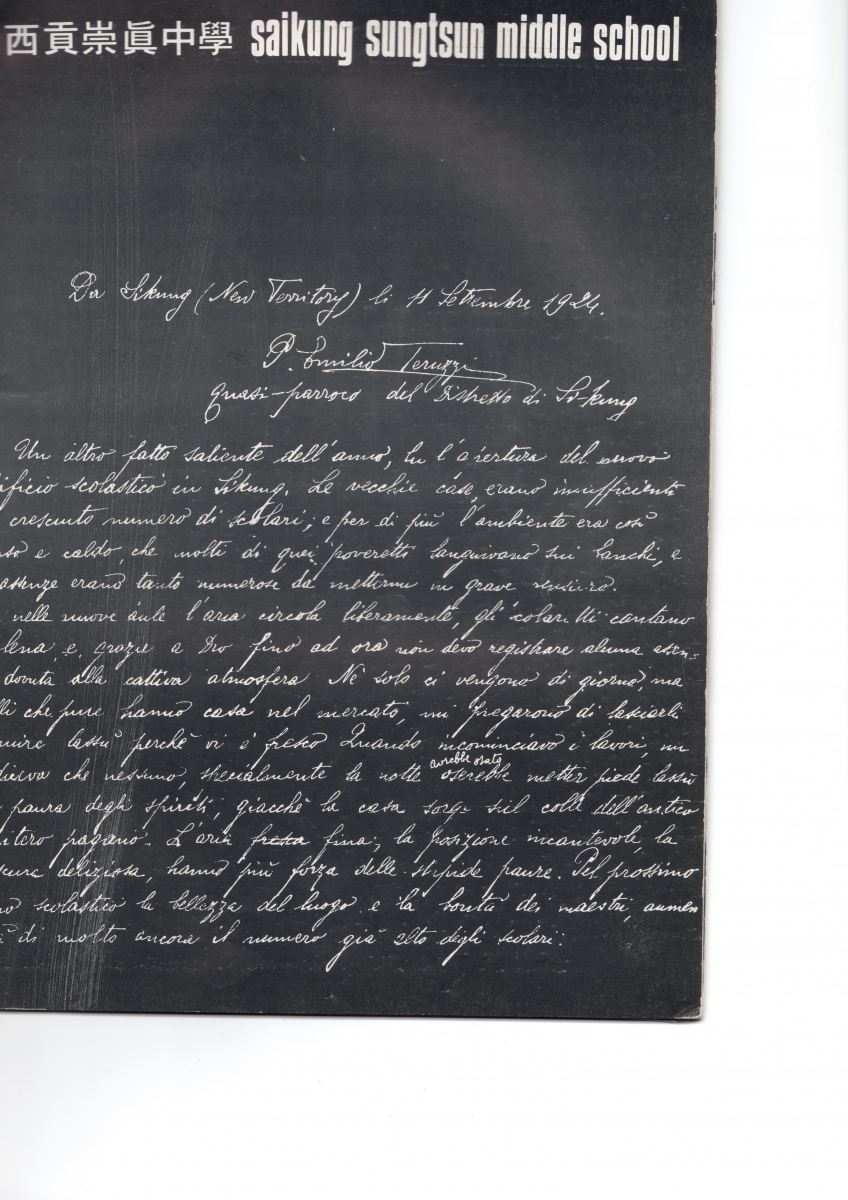 西貢崇眞中學 saikung sungtsun middle school
Da Sikung (New Territory) li 11 Settembre 1924.
P. Emilio Teruzzi
quasi-parroco del Distretto di Si-kung
Un altro fatto saliente dell'anno, fu l'apertura del nuovo
ificio scolastico in Sikung. Le vecchie case, erano insufficienti
cresciuto numero di scolari; e per di più l'ambiente era così
so e caldo, che molti di quei poveretti languivano sui banchi, e
assenze erano tanto numerose da mettermi in grave
nelle nuove aule l'aria circola liberamente, gli scolaretti cantano
lena, e, grazie a Dio fino ad ora non devo registrare alcuna assen=
dovuta alla cattiva atmosfera Nè solo ci vengono di giorno, ma
lli che pure hanno casa nel mercato, mi pregarono di lasciarli
mire lassù perchè vi è fresco Quando incominciavo i lavori, mi
diceva che nessuno, specialmente la notte avrebbe osato oserebbe metter piede lassù
paura degli spiriti, giacchè la casa sorge sul colle dell'antico
itero pagano. L'aria fresca fina, la posizione incantevole, la
scura deliziosa, hanno più forza delle stupide paure. Pel prossimo
no scolastico la bellezza del luogo e la bontà dei maestri, aumen
à di molto ancora il numero già alto degli scolari.